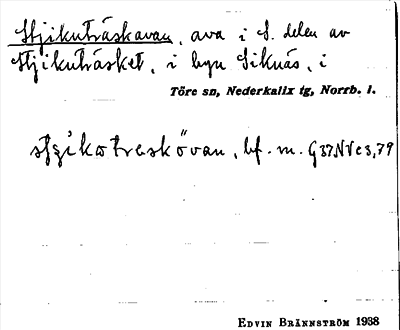 Stjikuträskavan, ava i S. delen av
Stjikuträsket, i byn Siknäs, i
Töre sn, Nederkalix tg, Norrb. l.
bf. m.
EDVIN BRÄNNSTRÖM 1938